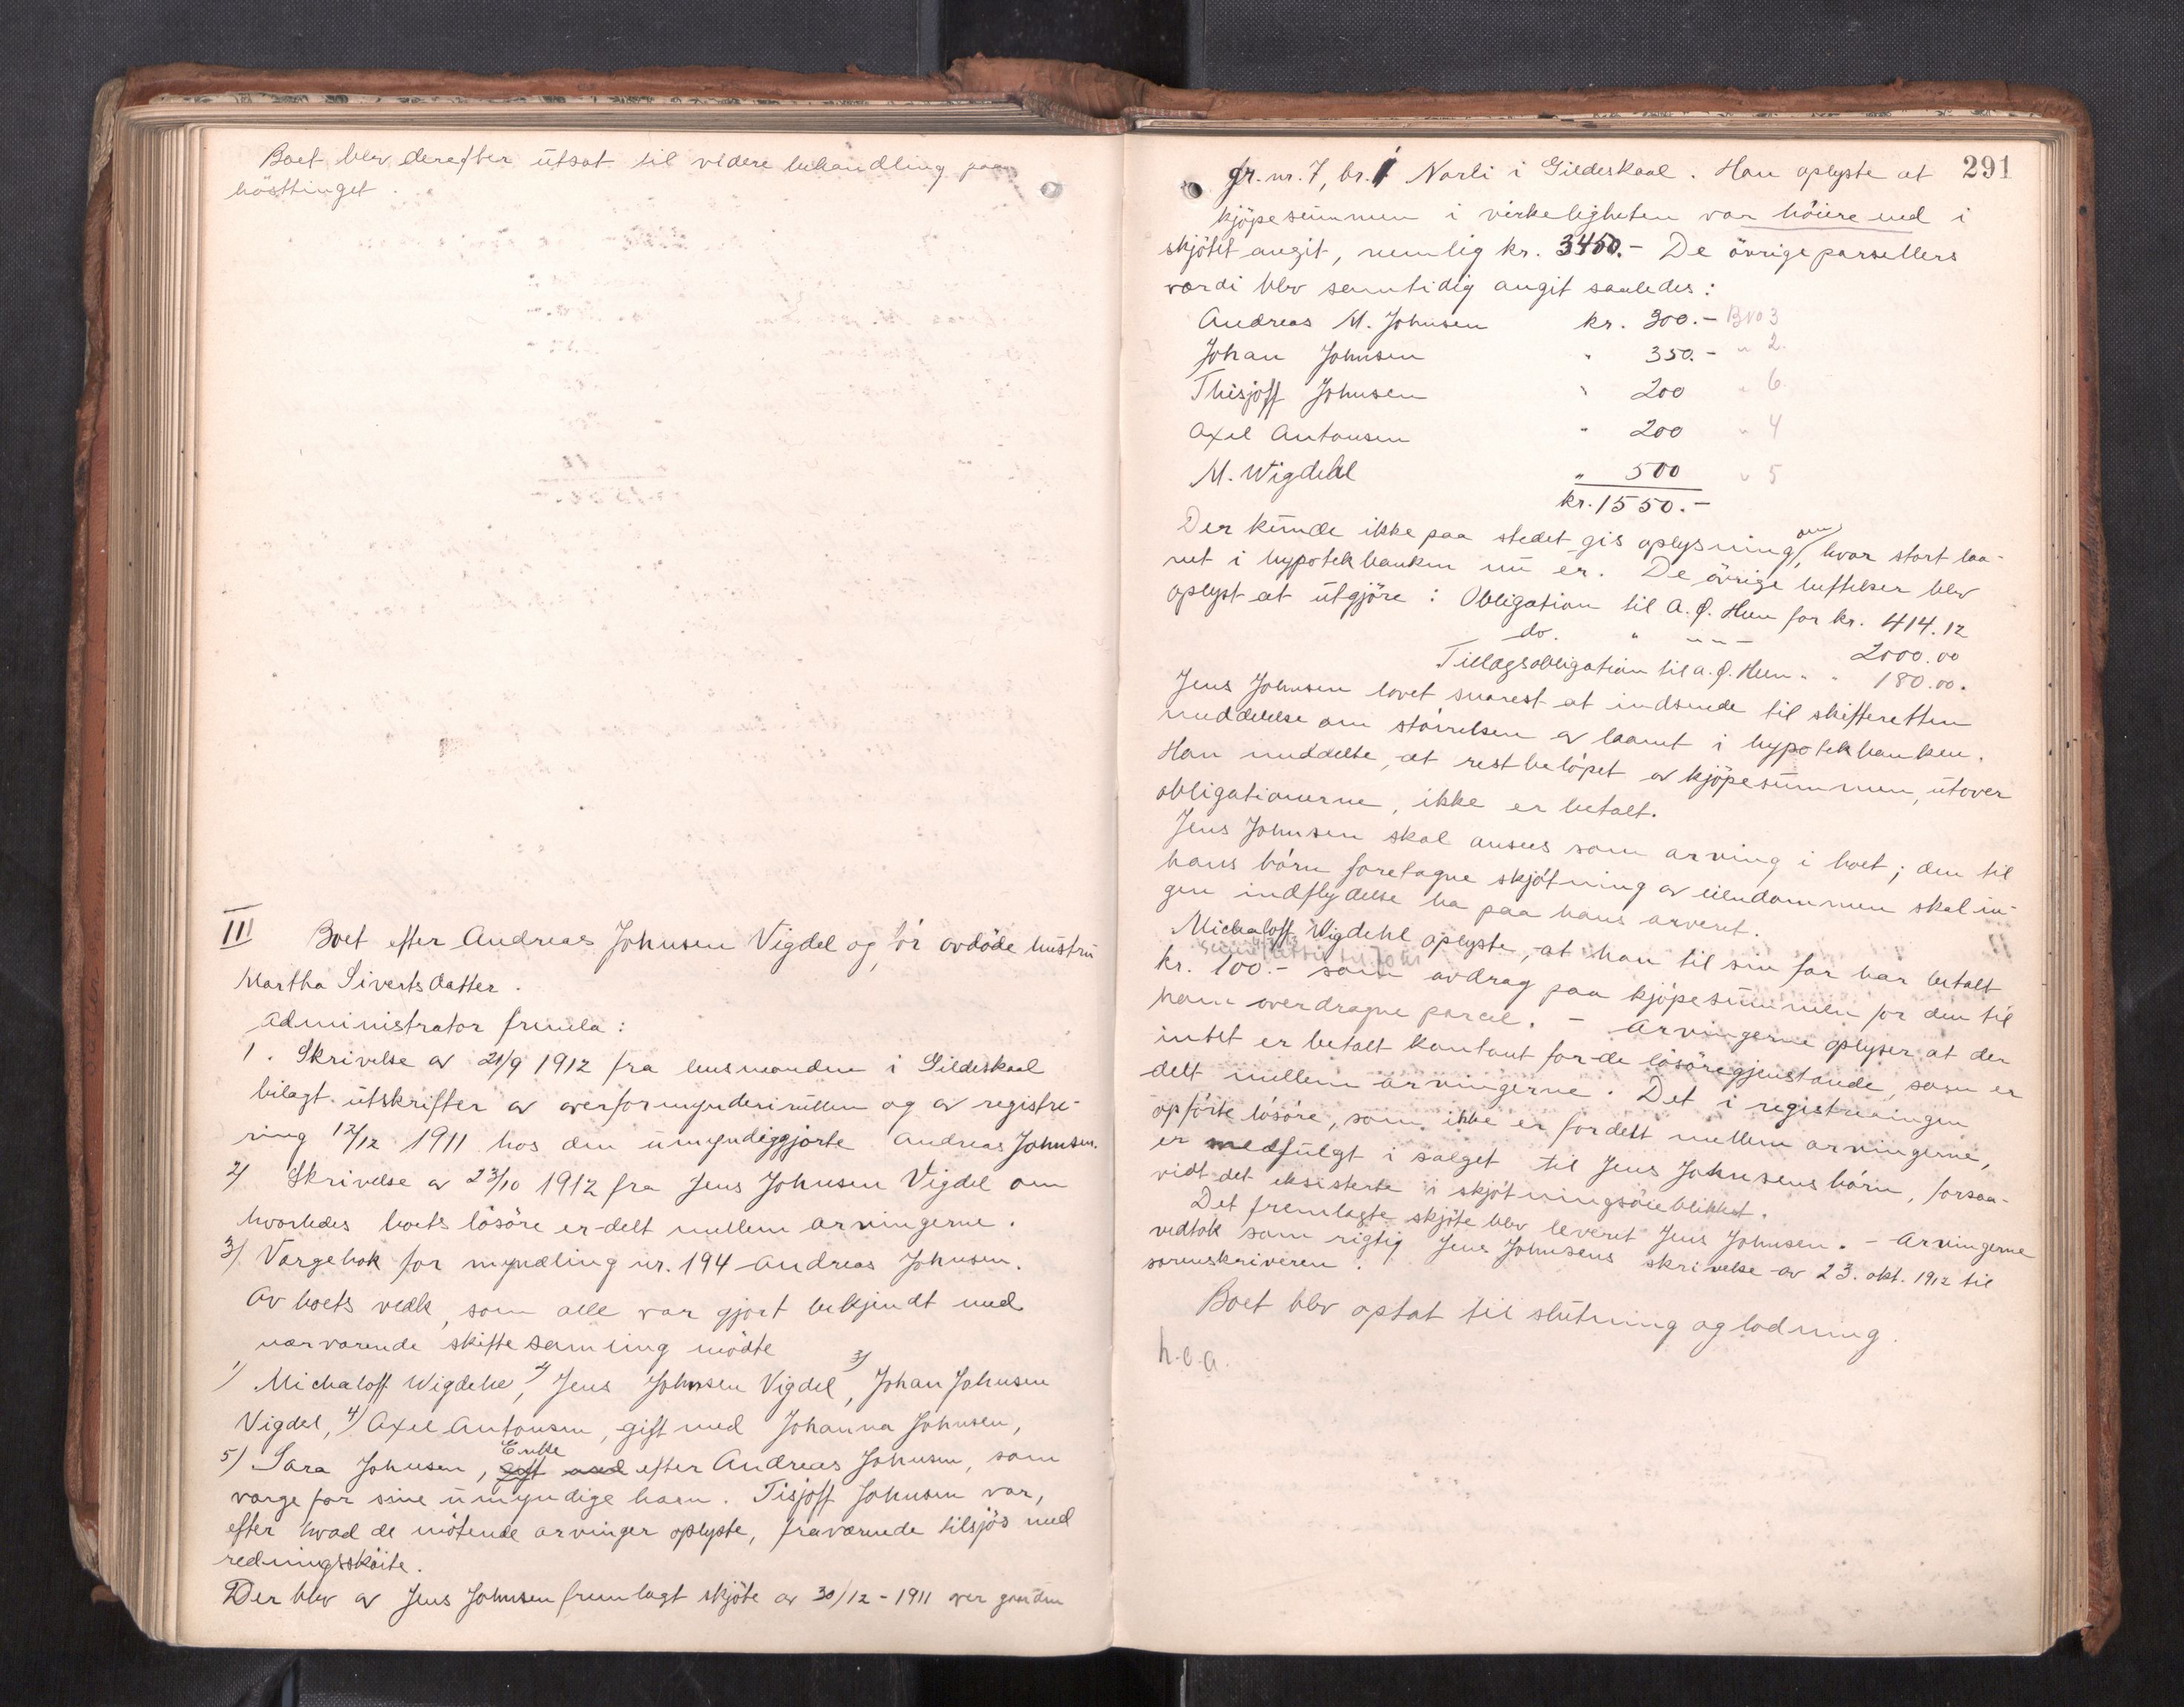 Boet blev derefter utsat til videre behandling paa
hösttinget.
III Boet efter Andreas Johnsen Vigdel og för avdöde hustru
Martha Sivertsdatter.
Administrator fremla:
1. Skrivelse av 21/9 1912 fra lensmanden i Gildeskaal
bilagt utskrifter av overformynderirullen og av registre-
ring 12/12 1911 hos den umyndiggjorte Andreas Johnsen.
2) Skrivelse av 23/10 1912 fra Jens Johnsen Vigdel om
hvorledes boets lösöre er delt mellem arvingerne.
3) Vergebok for myndling nr. 194 Andreas Johnsen.
Av boets vedk, som alle var gjort bekjendt med
nærværende skiftesamling mödte
1) Michaloff Wigdehl, 2) Jens Johnsen Vigdel, 3) Johan Johnsen
Vigdel, 4) Axel Antonsen, gift med Johanna Johnsen,
5) Sara Johnsen, gift med Enke efter Andreas Johnsen, som
verge for sine umyndige barn. Tisjoff Johnsen var,
efter hvad de mötende arvinger oplyste, fraværende tilsjös med
redningssköite.
Der blev av Jens Johnsen fremlagt skjöte av 30/12-1911 over gaarden
291
gr. nr. 7, br. 1 Narli i Gildeskaal. Han oplyste at
kjöpesummen i virkeligheten var höiere end i
skjötet angit, nemlig kr. 3450.- De övrige parsellers
værdi blev samtidig angit saaledes:
Andreas M. Johnsen kr. 300.- BNo 3
Johan Johnsen " 350.- " 2.
Thisjoff Johnsen " 200 " 6.
Axel Antonsen " 200 " 4
M. Wigdehl " 500 " 5
kr. 1550.-
Der kunde ikke paa stedet gis oplysning om, hvor stort laa-
net i hypotekbanken nu er. De övrige heftelser blev
oplyst at utgjöre: Obligation til A. J. Heen for kr. 414.12
do. " " " - 2000.00
Tillægsobligation til A. J. Heen " " 180.00.
Jens Johnsen lovet snarest at indsende til skifteretten
meddelelse om störrelsen av laanet i hypotekbanken.
Han meddelte, at restbelöpet av kjöpesummen, utover
obligationerne, ikke er betalt.
Jens Johnsen skal ansees som arving i boet; den til
hans börn foretagne skjötning av eiendommen skal in-
gen indflydelse ha paa hans arveret.
Michaloff Wigdehl oplyste, at han til sin far har betalt
kr. 100.- som avdrag paa kjöpesummen for den til
ham overdragne parcel. - Arvingerne oplyser at der
intet er betalt kontant for de lösöregjenstande, som er
delt mellem arvingerne. Det i registreringen
opförte lösöre, som ikke er fordelt mellem arvingerne,
er medfulgt i salget til Jens Johnsens börn, forsaa-
vidt det eksisterte i skjötningsöieblikket.
Det fremlagte skjöte blev leveret Jens Johnsen. - Arvingerne
vedtok som rigtig Jens Johnsens skrivelse av 23. okt. 1912 til
sorenskriveren.
Boet blev optat til slutning og lodning.
h.e.a.